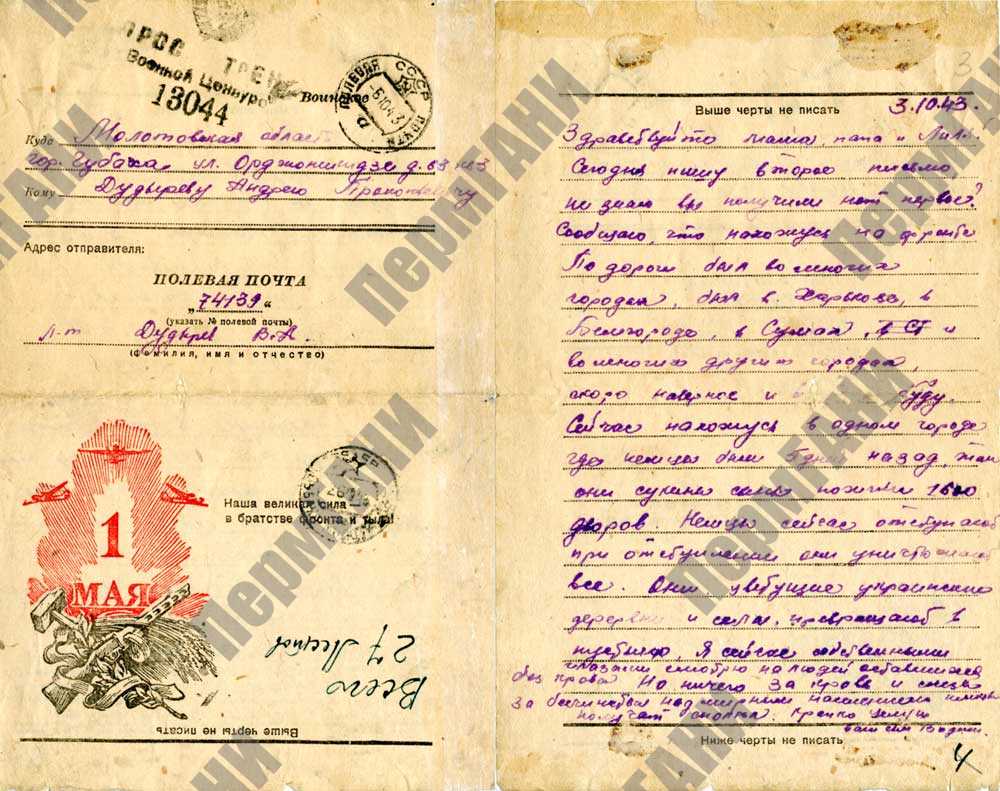 ПРОС ТРЕН
Военной Цензурой
13044
Воинское
ПОЛЕВАЯ ПОЧТА СССР
6 10 43
Куда Молотовская область
гор. Губаха ул. Орджоникидзе д. 83 кв 3
Кому Дудыреву Андрею Прокопьевичу
Адрес отправителя:
ПОЛЕВАЯ ПОЧТА
„74139“
(указать № полевой почты)
Л-т Дудырев В.А.
(фамилия, имя и отчество)
1
МАЯ
Наша великая сила
в братстве фронта и тыла!
Всего
27
Выше черты не писать
3
Выше черты не писать 3.10.43.
Здравствуйте мама, папа и
Сегодня пишу второе письмо
не знаю вы получили нет первое?
Сообщаю, что нахожусь на фронте
По дороги был во многих
городах, был в Харькове, в
Белгороде, в Сумах, и
во многих других городах,
скоро наверное и буду.
Сейчас нахожусь в одном городе
где немцы были 5 дней назад, так
они сукины сыны пожгли 1600
дворов. Немцы сейчас отступают
при отступлении они уничтожают
все. Они цветущие украинские
деревни и села, превращают в
пустыню, Я сейчас собственными
глазами смотрю на людей оставшихся
без крова. Но ничего за кровь и слезы
за бесчинства над мирным населением немцы
получат сполна. Крепко целую
ваш сын Вадим.
Ниже черты не писать
4
ПермГАНИ